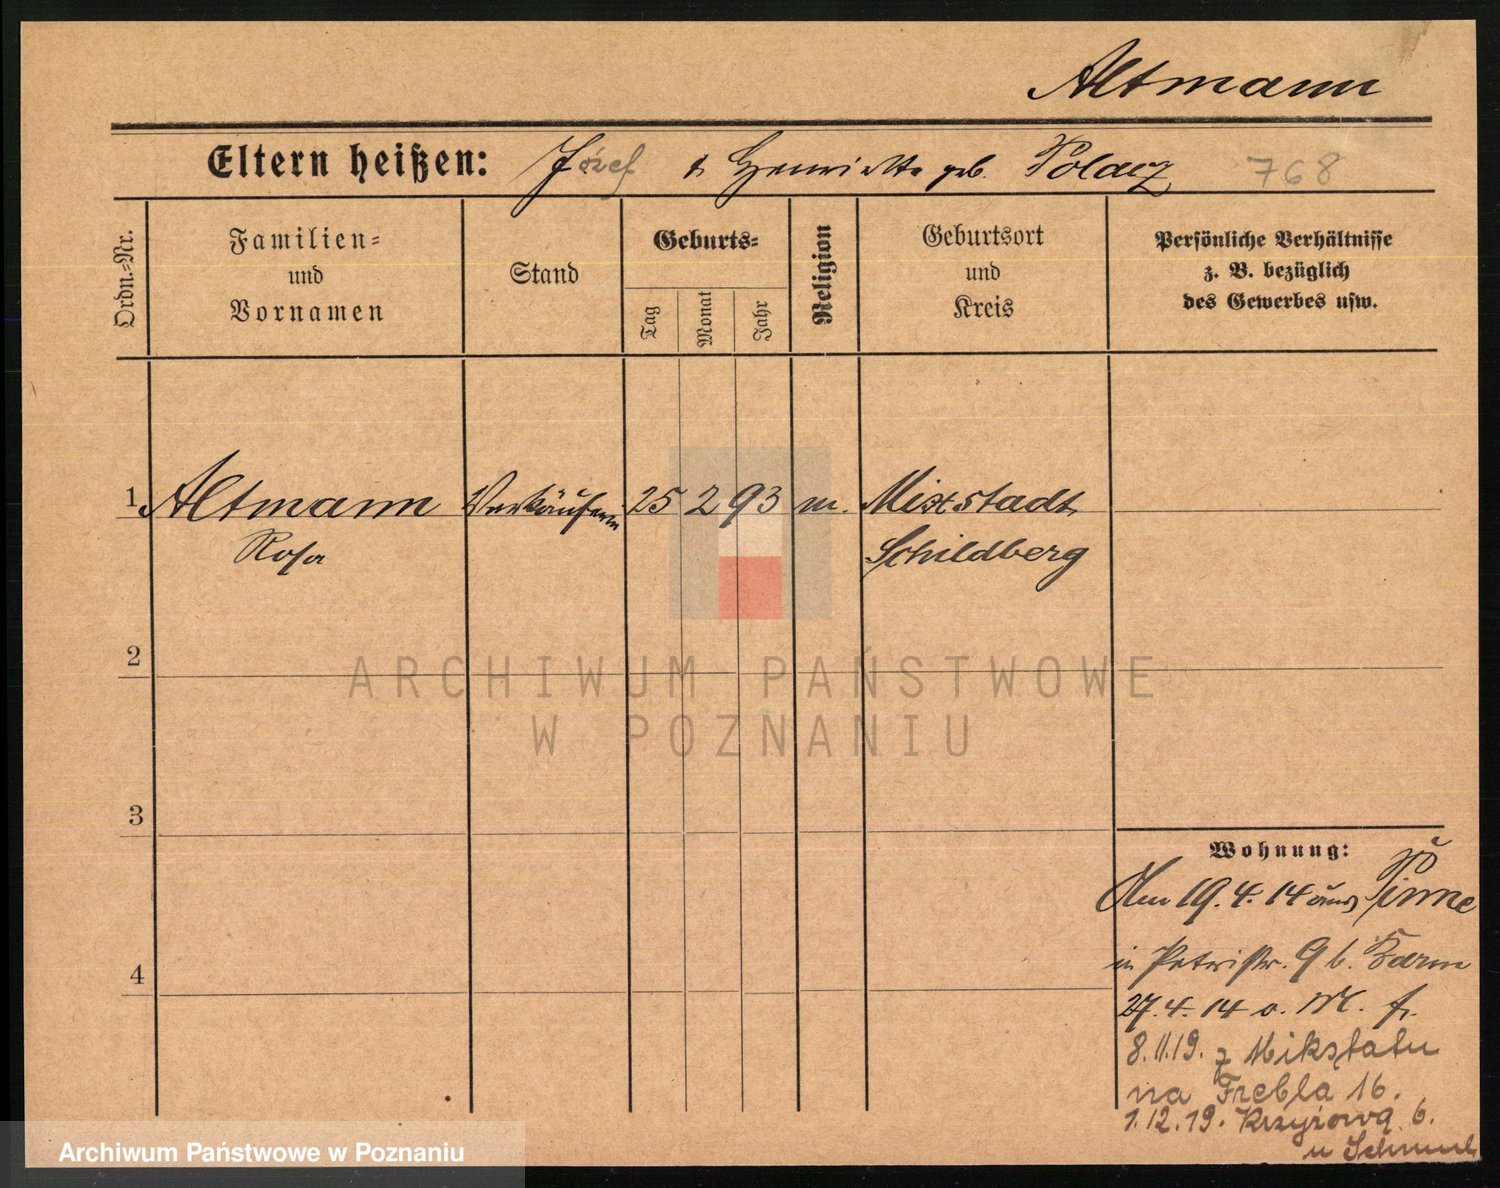 Altmann
Eltern heißen: Józef & Henriette geb. Polacz 768
Ordn.-Nr.
Familien-
und
Vornamen
Stand
Geburts-
Tag
Monat
Jahr
Religion
Geburtsort
und
Kreis
Persönliche Verhältnisse
z. B. bezüglich
des Gewerbes usw.
1 Altmann Verkäuferin 25 2 93 m. Mixstadt
Rosa Schildberg
2
ARCHIWUM PAŃSTWOWE
W POZNANIU
3
Wohnung:
Am 19.4.14 aus Pinne
4
in Petristr. 9 b.
27.4.14 o. M. fr.
8.11.19. z Mikstatu
na Frebla 16.
1.12.19. Krzyżowa 6.
u
Archiwum Państwowe w Poznaniu